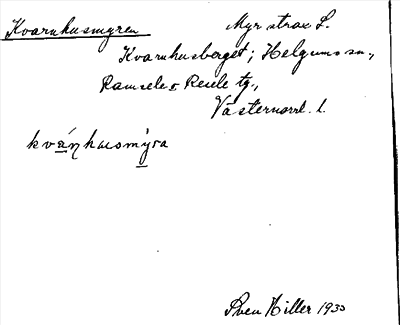 Kvarnhusmyren
Myr strax S.
Kvarnhusberget; Helgums sn.,
Ramsele o. Resele tg.,
Västernorrl. l.
kváṇhusmýra
Sven Hiller 1933